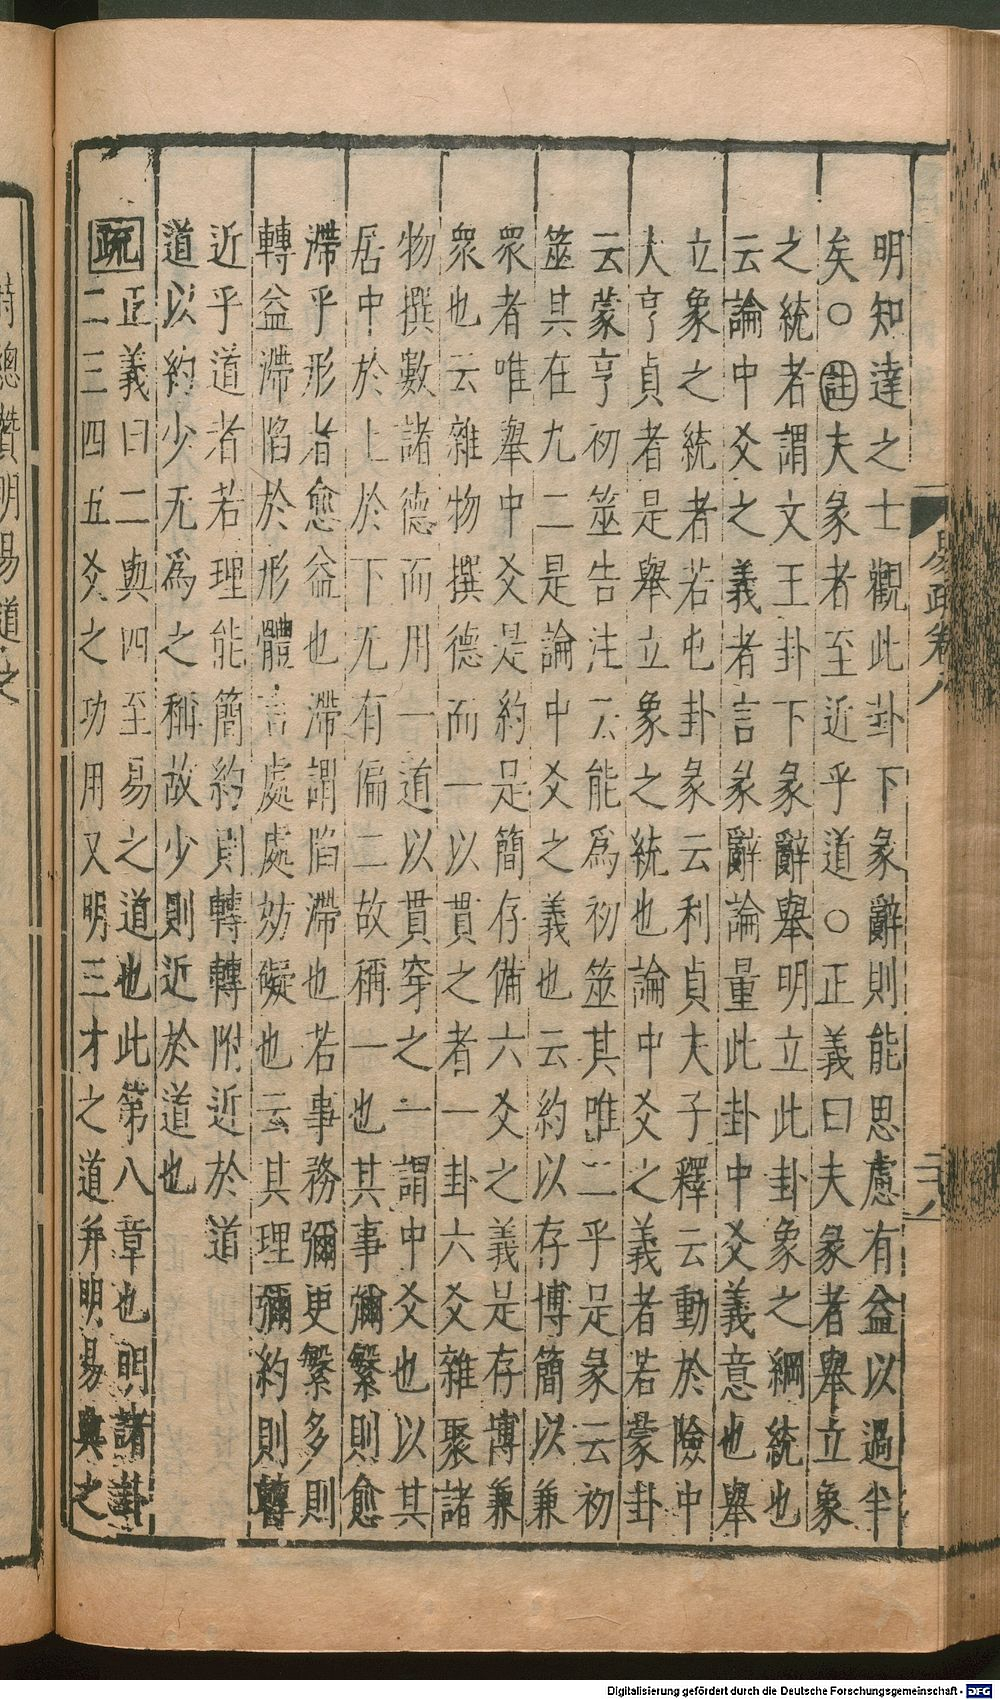 明知達之士觀此卦下彖辭則能思慮有益以過半
矣○註夫彖者至近乎道○正義曰夫彖者舉立象
之統者謂文王卦下彖辭舉明立此卦象之綱統也
云論中爻之義者言彖辭論量此卦中爻義意也舉
立象之統者若屯卦彖云利貞夫子釋云動於險中
大亨貞者是舉立象之統也論中爻之義者若蒙卦
云蒙亨初筮告注云能爲初筮其唯二乎是彖云初
筮其在九二是論中爻之義也云約以存博簡以兼
衆者唯舉中爻是約是簡存備六爻之義是存博兼
衆也云雜物撰德而一以貫之者一卦六爻雜聚諸
物撰數諸德而用一道以貫穿之一謂中爻也以其
居中於上於下无有偏二故稱一也其事彌繁則愈
滯乎形者愈益也滯謂陷滯也若事務彌更繁多則
轉益滯陷於形體言處處妨礙也云其理彌約則轉
近乎道者若理能簡約則轉轉附近於道
道以約少无爲之稱故少則近於道也
正義曰二與四至易之道也此第八章也明諸卦
疏二三四五爻之功用又明三才之道并明易興之
易疏卷八
二八
Digitalisierung gefördert durch die Deutsche Forschungsgemeinschaft - DFG